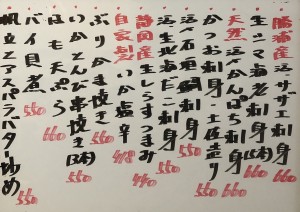 勝浦産 活・サザエ刺身 660
生シマ海老刺身(2本) 660
天然 活〆かんぱち刺身 660
かつお刺身・土佐造り 550
活〆石鯛刺身 550
活〆北海だこ刺身 550
静岡産 生しらすつまみ 440
自家製 いか塩辛 418
ぶりかま焼き 660
いかとんび串焼き(2本) 660
はも天ぷら 660
バイ貝煮 550
帆立とアスパラバター炒め 550